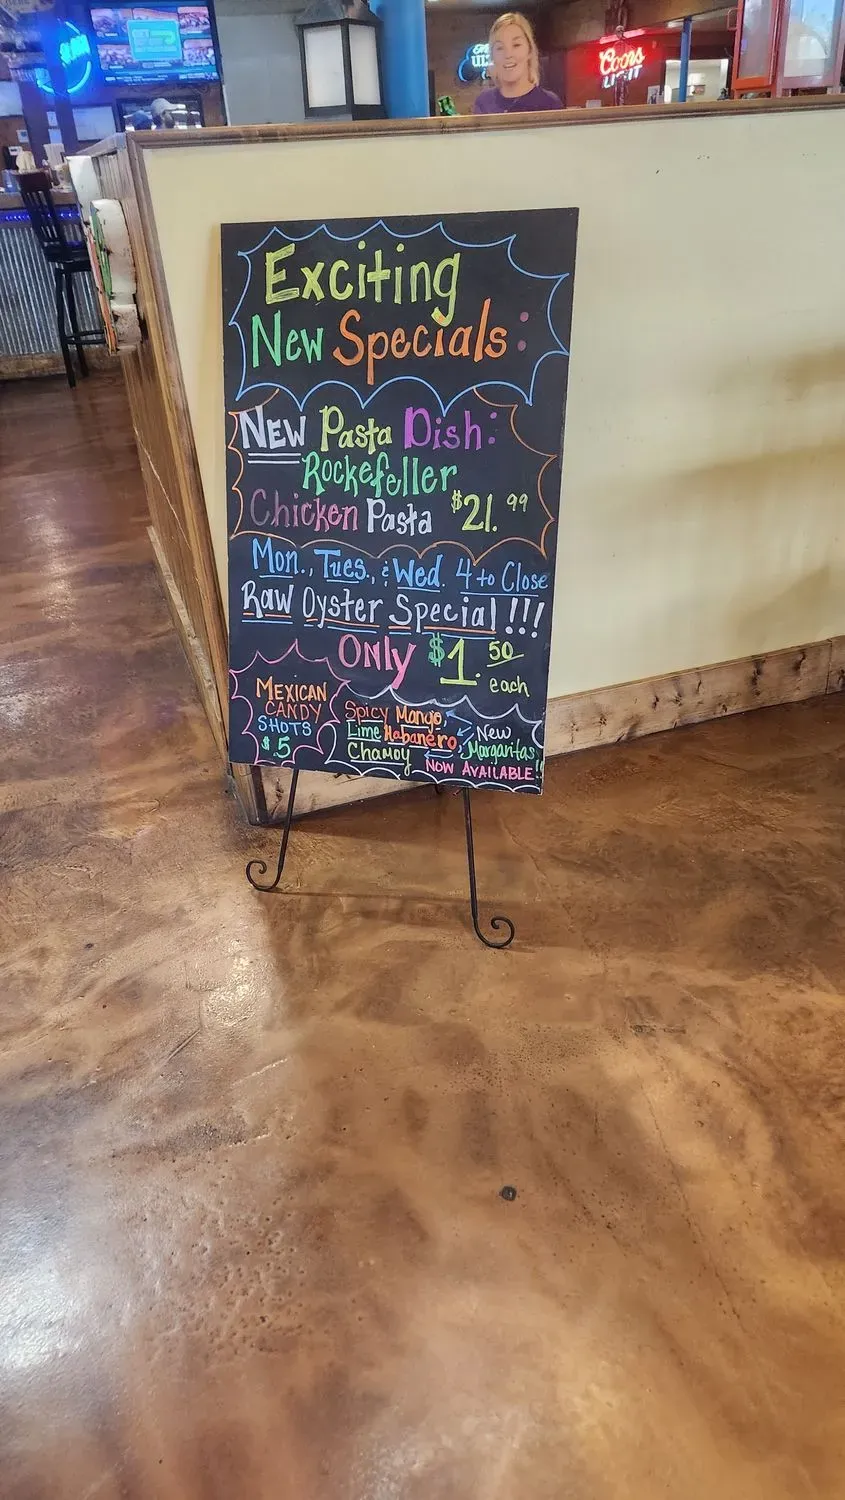 Coors
LIGHT
Exciting
New Specials:
NEW Pasta Dish:
Rockefeller
Chicken Pasta $21.99
Mon., Tues., & Wed. 4 to Close
Raw Oyster Special!!!
ONLY $1.50
each
MEXICAN
CANDY
SHOTS
$5
Spicy Mango,
Lime Habanero,
Chamoy
New
Margaritas
NOW AVAILABLE!!